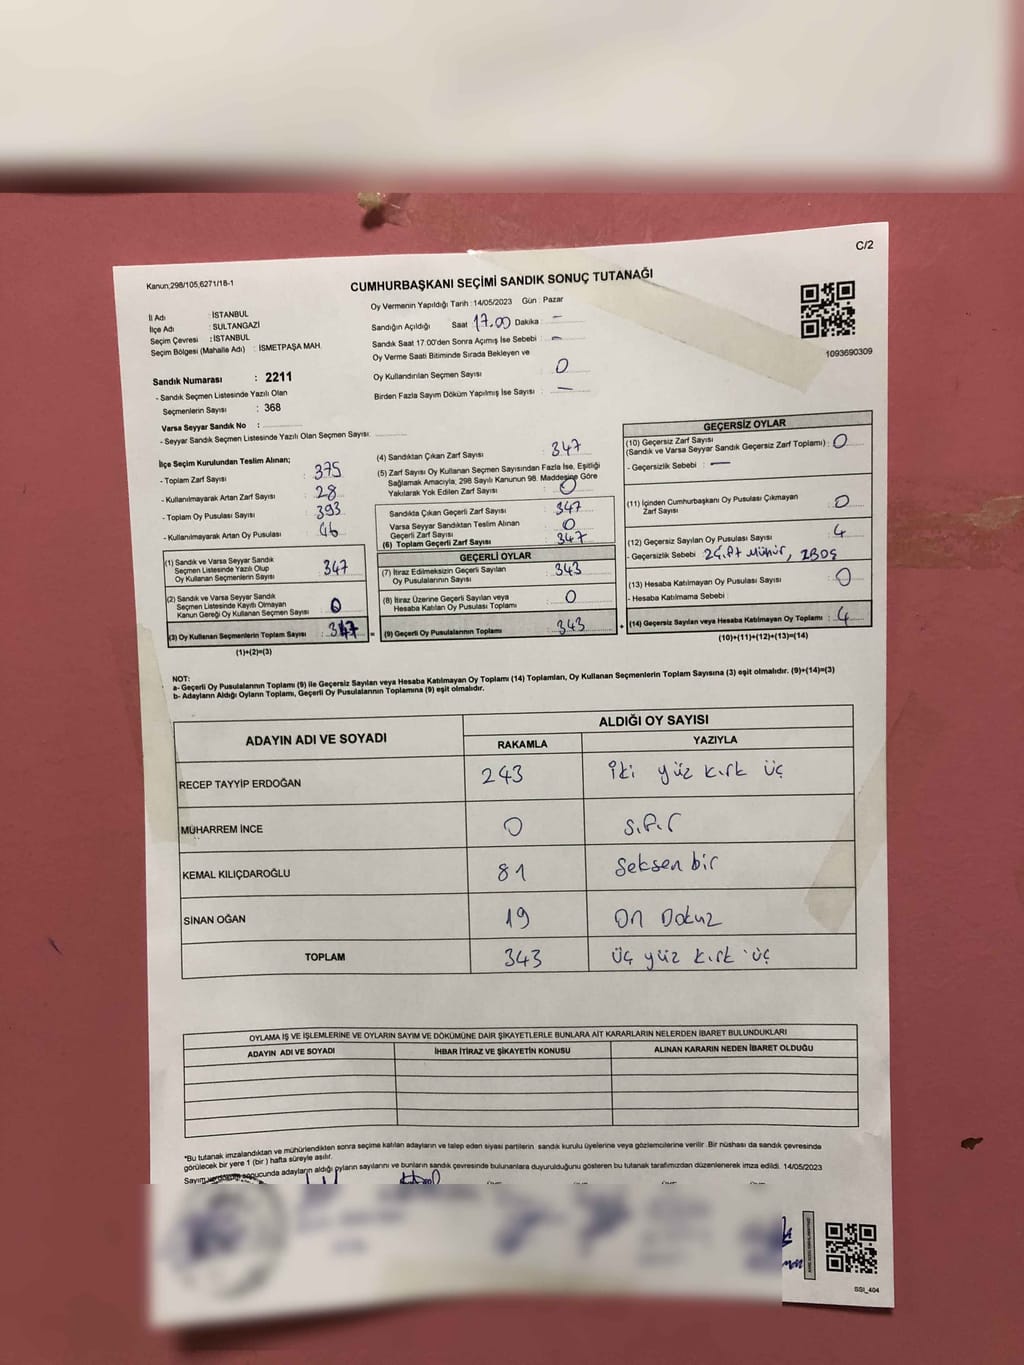 C/2
Kanun;298/105,6271/18-1
CUMHURBAŞKANI SEÇİMİ SANDIK SONUÇ TUTANAĞI
İl Adı : İSTANBUL
İlçe Adı : SULTANGAZİ
Seçim Çevresi : İSTANBUL
Seçim Bölgesi (Mahalle Adı) : İSMETPAŞA MAH.
Oy Vermenin Yapıldığı Tarih : 14/05/2023 Gün : Pazar
Sandığın Açıldığı Saat 17.00 Dakika : -
Sandık Saat 17.00'den Sonra Açımış İse Sebebi : -
Oy Verme Saati Bitiminde Sırada Bekleyen ve
Oy Kullandırılan Seçmen Sayısı 0
Birden Fazla Sayım Döküm Yapılmış İse Sayısı : -
1093690309
Sandık Numarası : 2211
- Sandık Seçmen Listesinde Yazılı Olan
Seçmenlerin Sayısı : 368
Varsa Seyyar Sandık No :
- Seyyar Sandık Seçmen Listesinde Yazılı Olan Seçmen Sayısı:
İlçe Seçim Kurulundan Teslim Alınan;
- Toplam Zarf Sayısı : 375
- Kullanılmayarak Artan Zarf Sayısı : 28
- Toplam Oy Pusulası Sayısı : 393
- Kullanılmayarak Artan Oy Pusulası : 46
(1) Sandık ve Varsa Seyyar Sandık
Seçmen Listesinde Yazılı Olup
Oy Kullanan Seçmenlerin Sayısı : 347
(2) Sandık ve Varsa Seyyar Sandık
Seçmen Listesinde Kayıtlı Olmayan
Kanun Gereği Oy Kullanan Seçmen Sayısı : 0
(3) Oy Kullanan Seçmenlerin Toplam Sayısı : 347 =
(1)+(2)=(3)
(4) Sandıktan Çıkan Zarf Sayısı : 347
(5) Zarf Sayısı Oy Kullanan Seçmen Sayısından Fazla İse, Eşitliği
Sağlamak Amacıyla; 298 Sayılı Kanunun 98. Maddesine Göre
Yakılarak Yok Edilen Zarf Sayısı : 0
Sandıkta Çıkan Geçerli Zarf Sayısı : 347
Varsa Seyyar Sandıktan Teslim Alınan
Geçerli Zarf Sayısı : 0
(6) Toplam Geçerli Zarf Sayısı : 347
GEÇERLİ OYLAR
(7) İtiraz Edilmeksizin Geçerli Sayılan
Oy Pusulalarının Sayısı : 343
(8) İtiraz Üzerine Geçerli Sayılan veya
Hesaba Katılan Oy Pusulası Toplamı : 0
(9) Geçerli Oy Pusulalarının Toplamı : 343 +
GEÇERSİZ OYLAR
(10) Geçersiz Zarf Sayısı
(Sandık ve Varsa Seyyar Sandık Geçersiz Zarf Toplamı) : 0
- Geçersizlik Sebebi : -
(11) İçinden Cumhurbaşkanı Oy Pusulası Çıkmayan
Zarf Sayısı : 0
(12) Geçersiz Sayılan Oy Pusulası Sayısı : 4
- Geçersizlik Sebebi : Mühür, 2Boş
(13) Hesaba Katılmayan Oy Pusulası Sayısı : 0
- Hesaba Katılmama Sebebi :
(14) Geçersiz Sayılan veya Hesaba Katılmayan Oy Toplamı : 4
(10)+(11)+(12)+(13)=(14)
NOT:
a- Geçerli Oy Pusulalarının Toplamı (9) ile Geçersiz Sayılan veya Hesaba Katılmayan Oy Toplamı (14) Toplamları, Oy Kullanan Seçmenlerin Toplam Sayısına (3) eşit olmalıdır. (9)+(14)=(3)
b- Adayların Aldığı Oyların Toplamı, Geçerli Oy Pusulalarının Toplamına (9) eşit olmalıdır.
ADAYIN ADI VE SOYADI ALDIĞI OY SAYISI
RAKAMLA YAZIYLA
RECEP TAYYİP ERDOĞAN 243 iki yüz kırk üç
MUHARREM İNCE 0 sıfır
KEMAL KILIÇDAROĞLU 81 Seksen bir
SİNAN OĞAN 19 On Dokuz
TOPLAM 343 üç yüz kırk üç
OYLAMA İŞ VE İŞLEMLERİNE VE OYLARIN SAYIM VE DÖKÜMÜNE DAİR ŞİKAYETLERLE BUNLARA AİT KARARLARIN NELERDEN İBARET BULUNDUKLARI
ADAYIN ADI VE SOYADI İHBAR İTİRAZ VE ŞİKAYETİN KONUSU ALINAN KARARIN NEDEN İBARET OLDUĞU
*Bu tutanak imzalandıktan ve mühürlendikten sonra seçime katılan adayların ve talep eden siyasi partilerin sandık kurulu üyelerine veya gözlemcilerine verilir. Bir nüshası da sandık çevresinde
görülecek bir yere 1 (bir) hafta süreyle asılır.
Sayım ve döküm sonucunda adayların aldığı oyların sayılarını ve bunların sandık çevresinde bulunanlara duyurulduğunu gösteren bu tutanak tarafımızdan düzenlenerek imza edildi. 14/05/2023
SSI_404